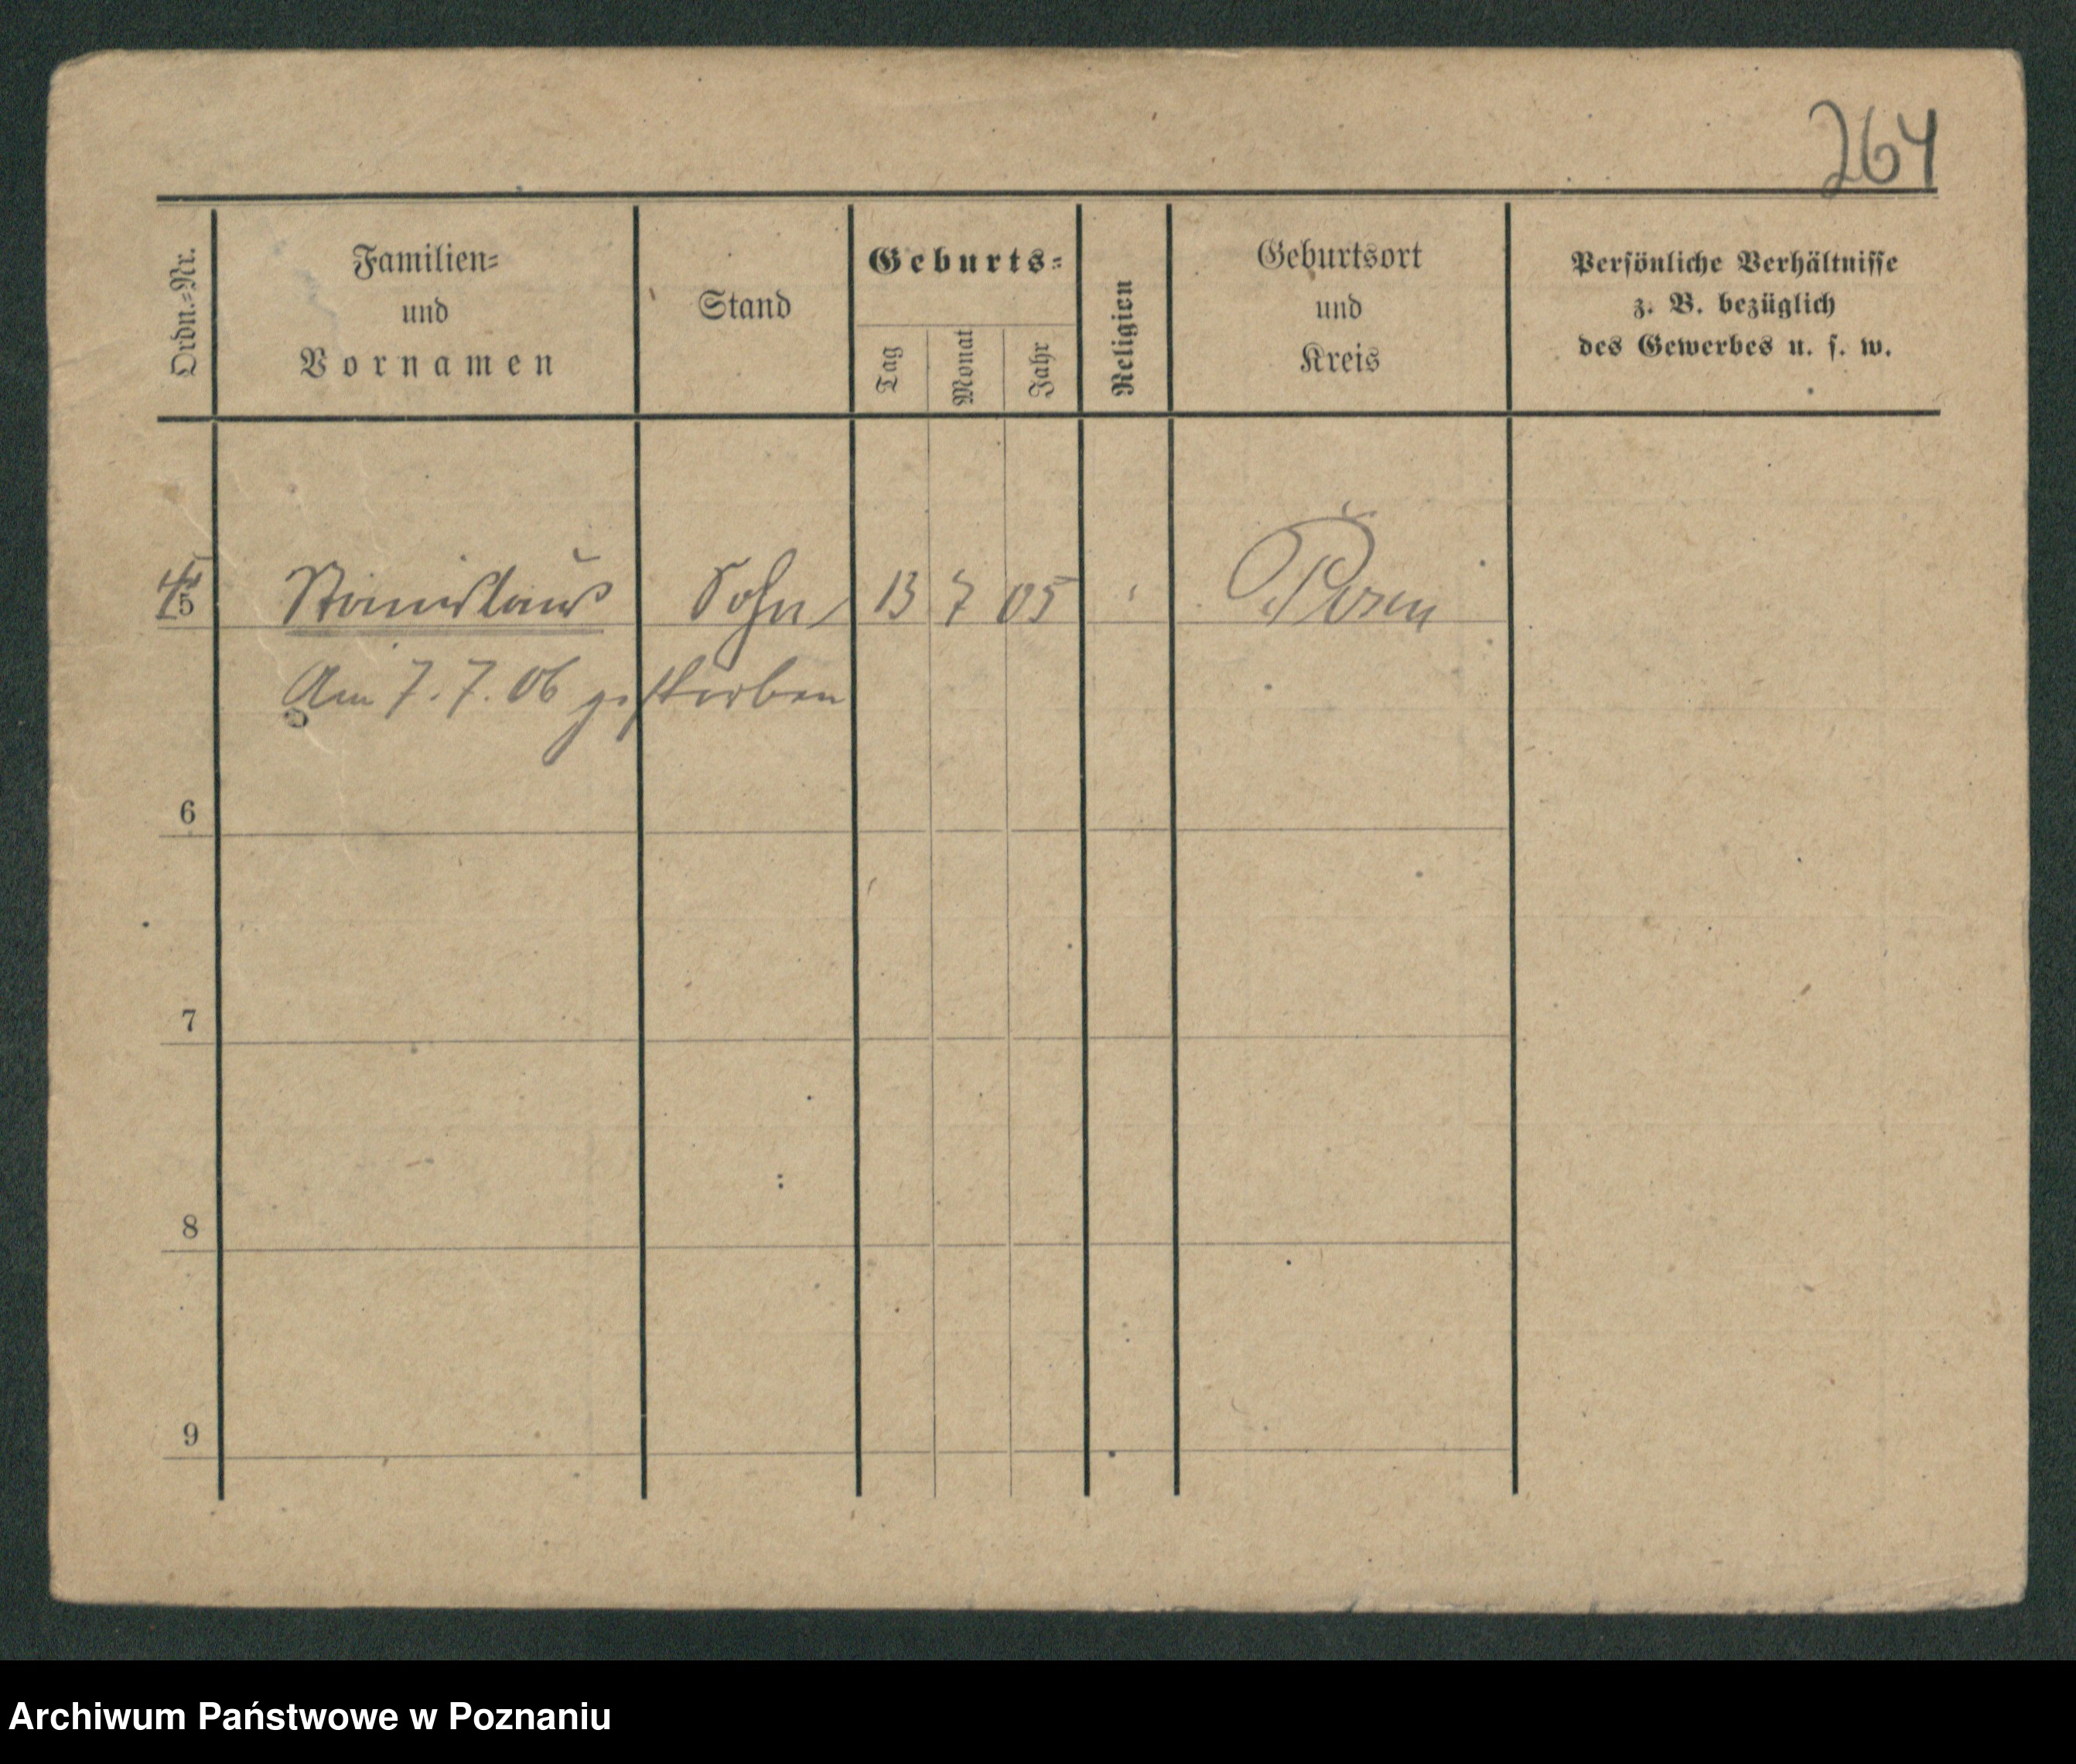 264
Ordn.-Nr.
Familien-
und
Vornamen
Stand
Geburts-
Tag
Monat
Jahr
Religion
Geburtsort
und
Kreis
Persönliche Verhältnisse
z. B. bezüglich
des Gewerbes u. s. w.
5 Stanislaus Sohn 13 7 05 Posen
Am 7.7.06 gestorben
6
7
8
9
Archiwum Państwowe w Poznaniu